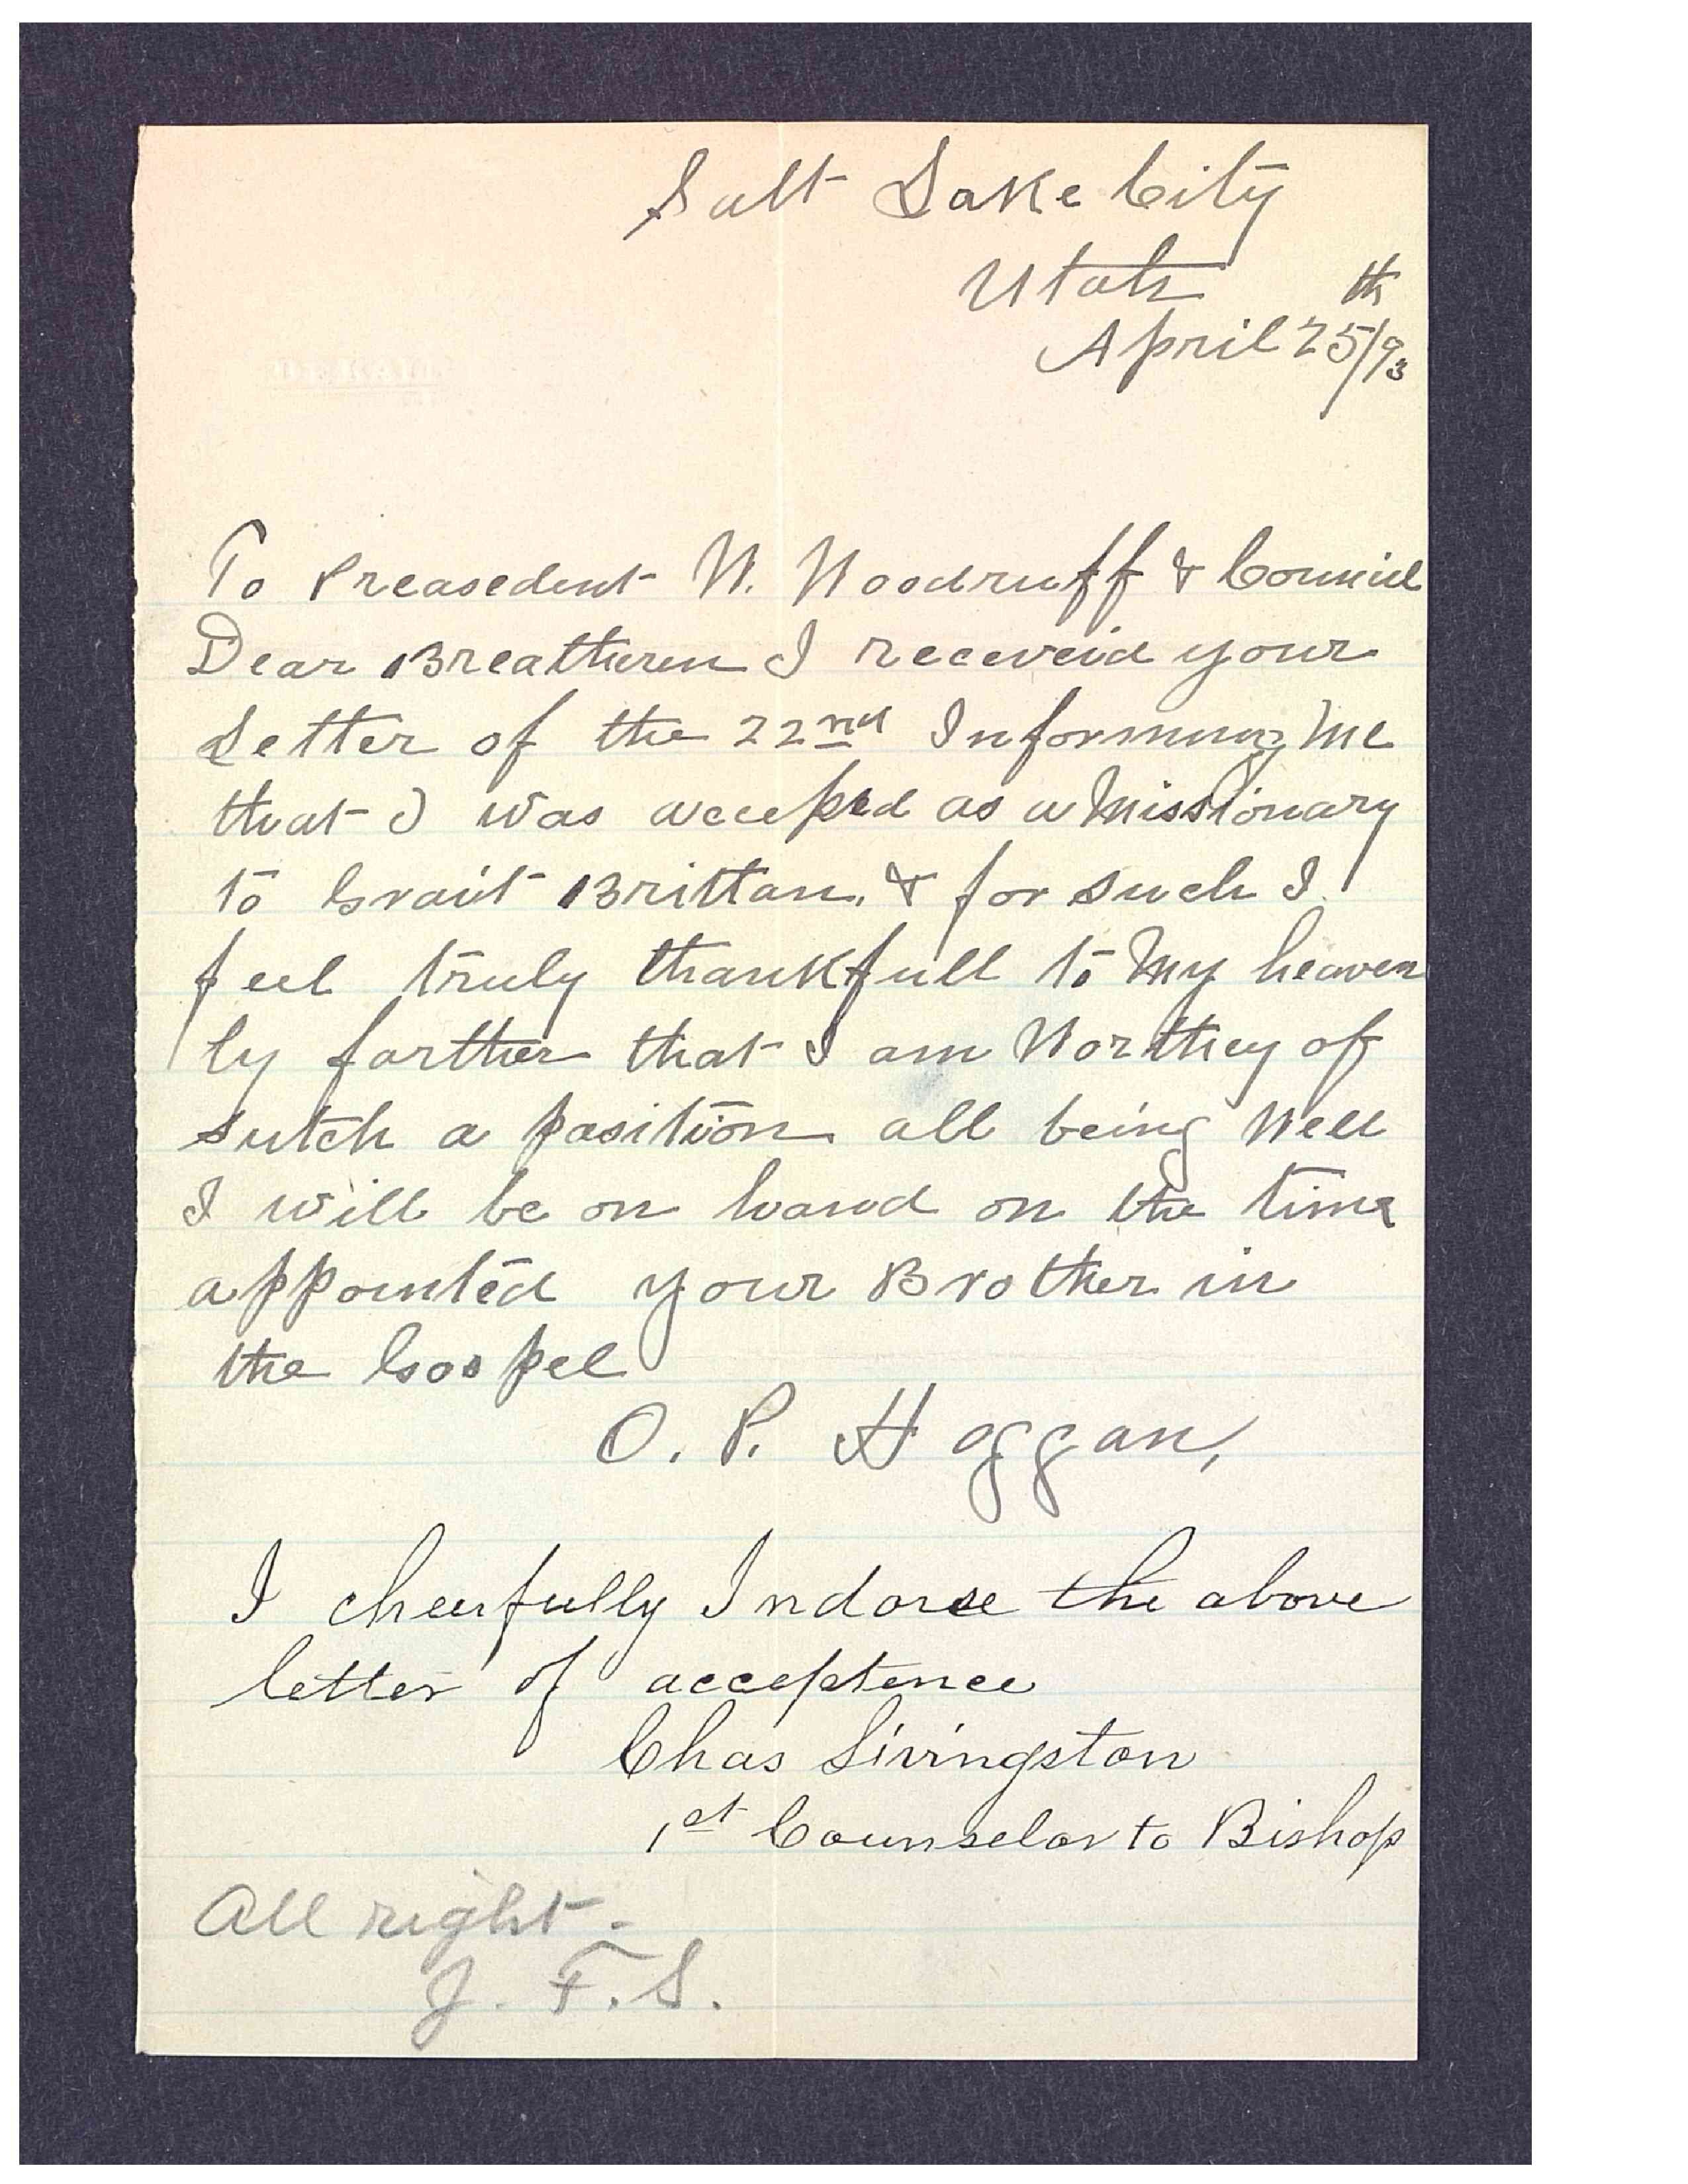 Salt Lake City
Utah
April 25th/93
To Preasedent W. Woodruff & Council
Dear Breatheren I receveid your
Letter of the 22nd Informing Me
that I was accepted as a Missionary
to Grait Brittan. & for such I
feel truly thankfull to My heaven
ly farther that I am Worthey of
sutch a position all being Well
I will be on hand on the time
appointed your Brother in
the Gospel
O. P. Hoggan,
I cheerfully Indorse the above
letter of acceptence
Chas Livingston
1st Counselor to Bishop
All right -
J. F. S.